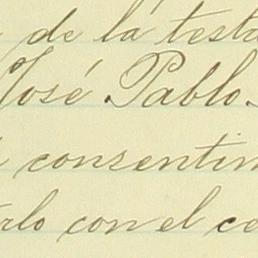 de la testa
José Pablo
consentim
rlo con el ce